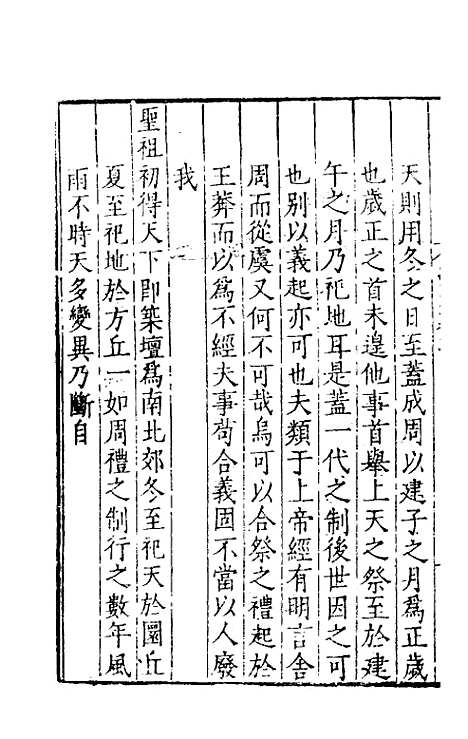 天則用冬之日至蓋成周以建子之月爲正歲
也歲正之首未遑他事首舉上天之祭至於建
午之月乃祀地耳是蓋一代之制後世因之可
也別以義起亦可也夫類于上帝經有明言舍
周而從虞又何不可哉烏可以合祭之禮起於
王莽而以爲不經夫事苟合義固不當以人廢
我
聖祖初得天下卽築壇爲南北郊冬至祀天於圜丘
夏至祀地於方丘一如周禮之制行之數年風
雨不時天多變異乃斷自